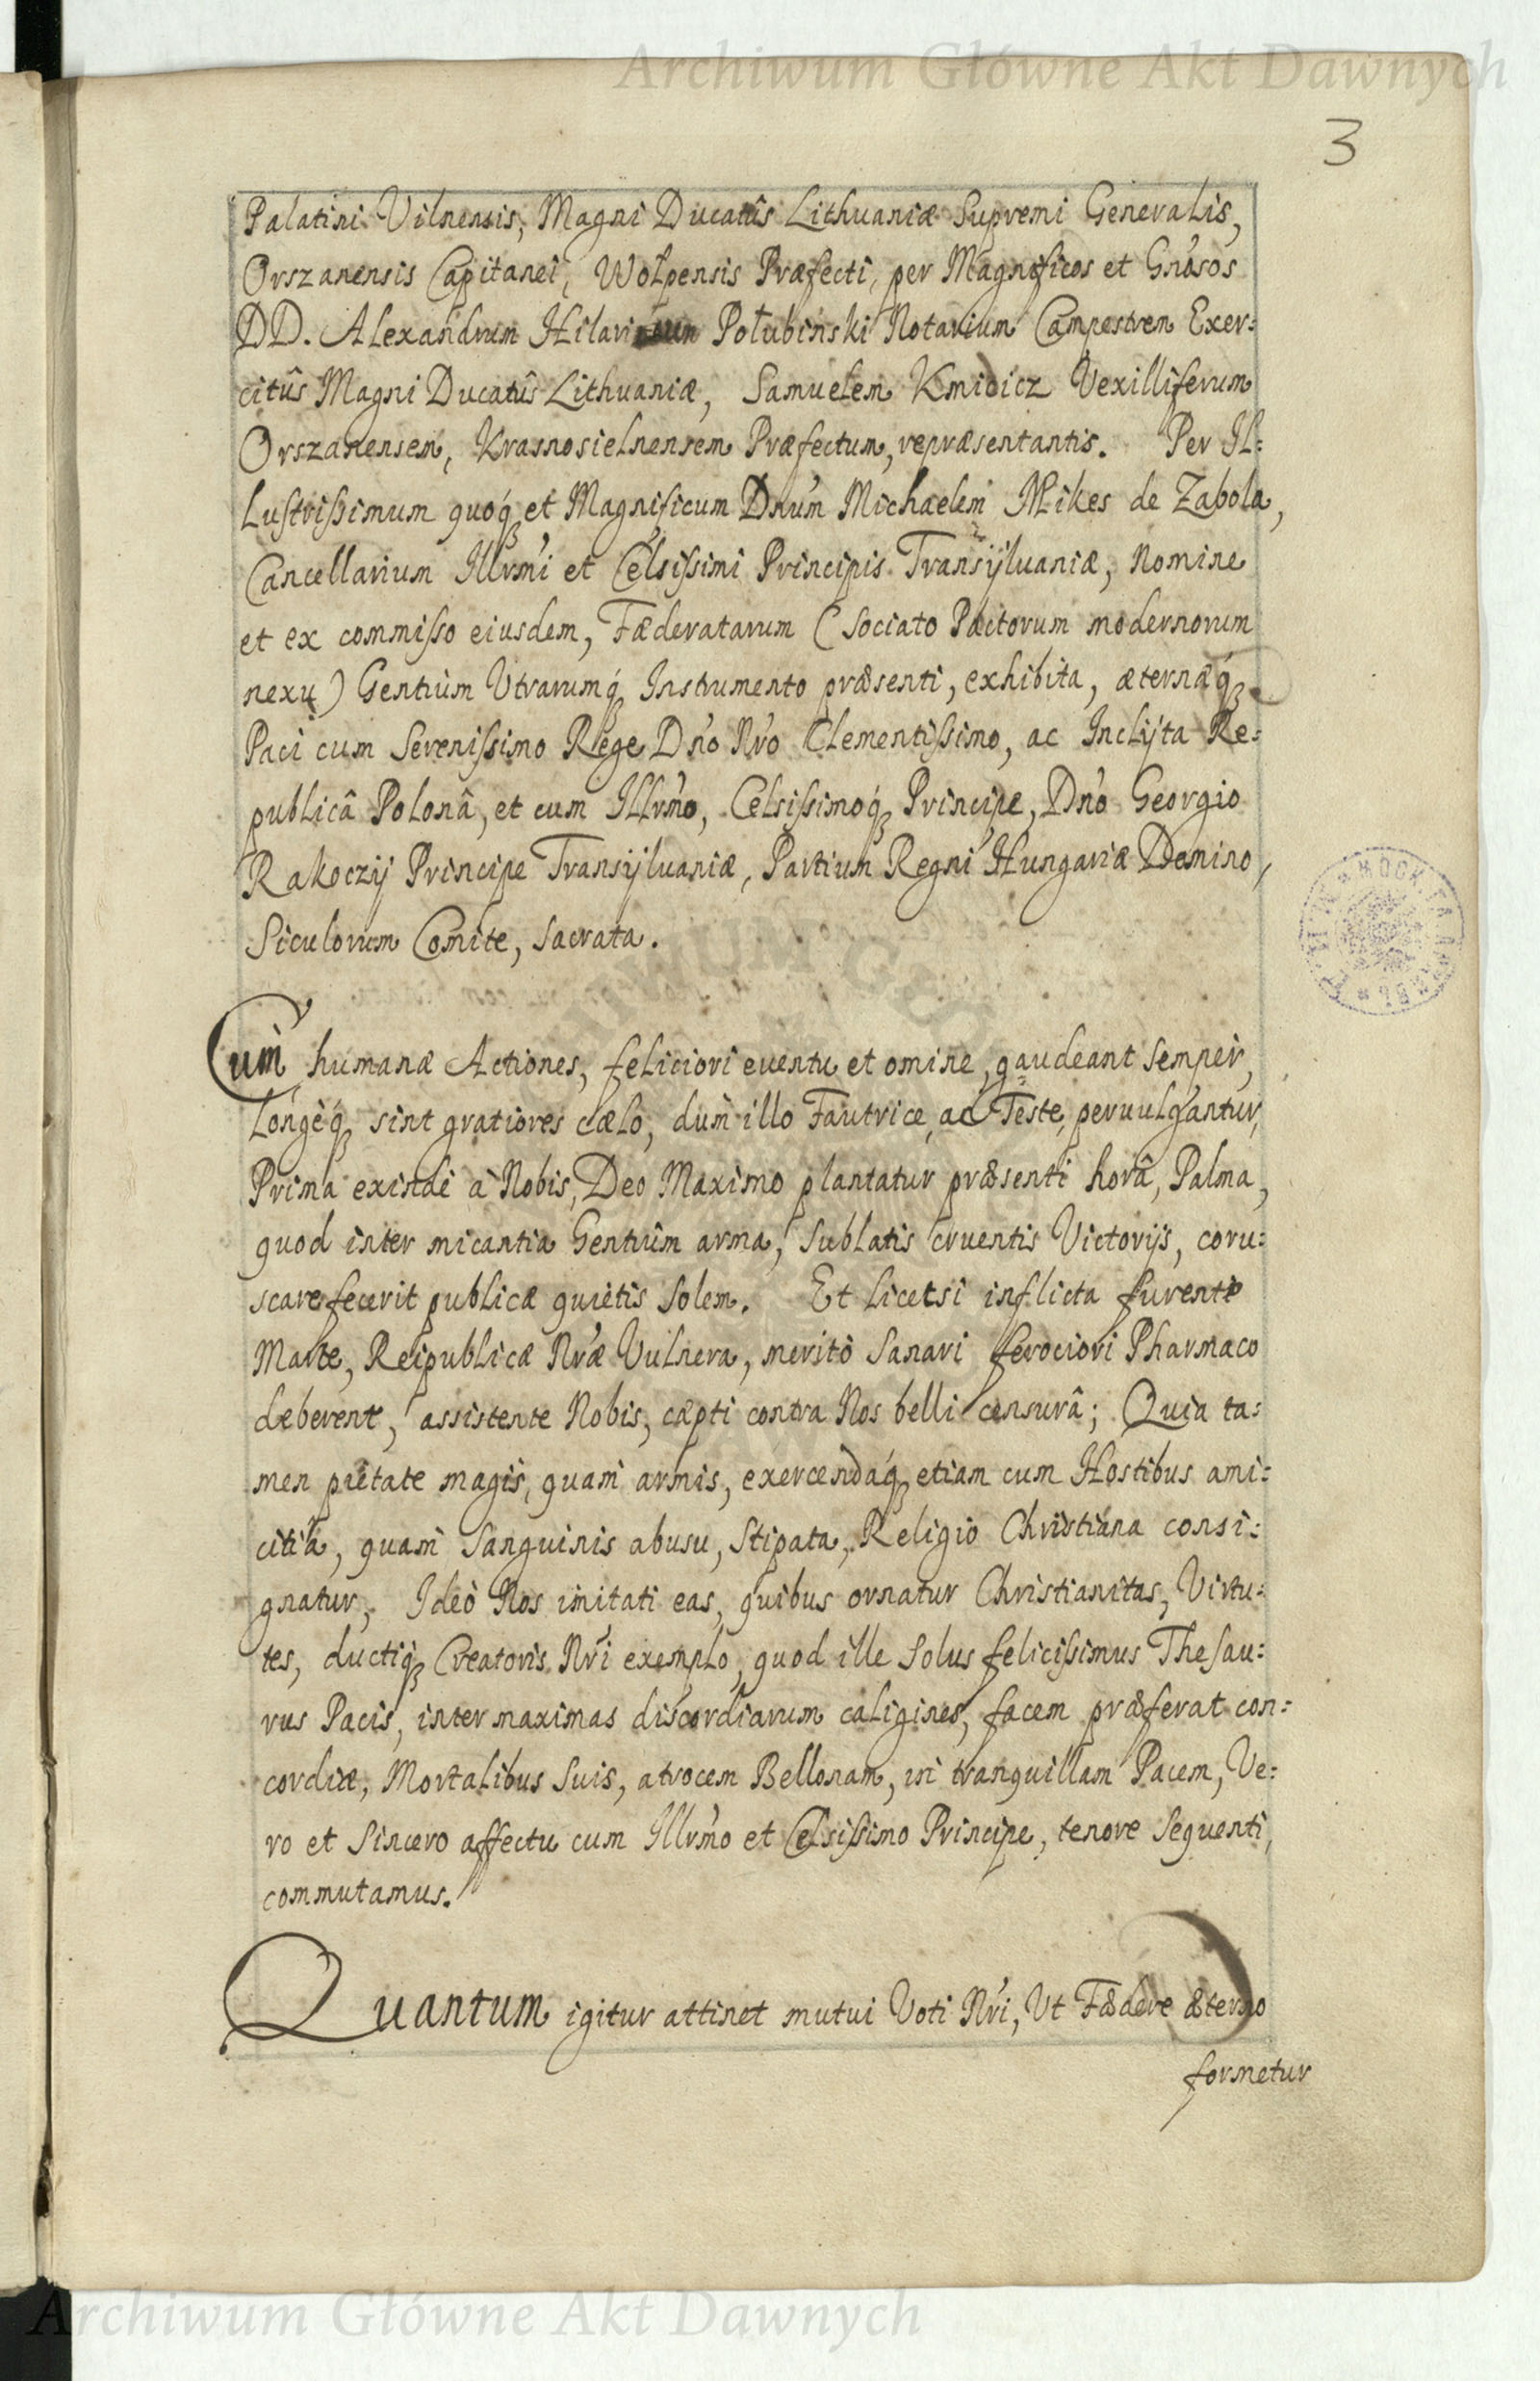 Archiwum Główne Akt Dawnych
3
Palatini Vilnensis, Magni Ducatûs Lithuaniæ Supremi Generalis,
Orszanensis Capitanei, Wołpensis Præfecti, per Magnificos et Gnŕosos
DD. Alexandrum Hilarionum Połubinski Notarium Campestrem Exer:
citûs Magni Ducatûs Lithuaniæ, Samuelem Kmicicz Vexilliferum
Orszanensem, Krasnosielnensem Præfectum, repræsentantis. Per Il:
lustrißimum quoq́ꝫ et Magnificum Dnum̃ Michaelem Mikes de Zabola,
Cancellarium Illrm̃i et Celsißimi Principis Transÿluaniæ, Nomine
et ex commisso eiusdem, Fæderatarum (sociato Pactorum modernorum
nexu) Gentiùm Utrarumq́ꝫ Instrumento præsenti, exhibita, æternæq́ꝫ
Paci cum Serenißimo Rege Dño Nŕo Clementißimo, ac Inclÿta Re:
publicâ Polonâ, et cum Illrm̃o, Celsißimoq́ꝫ Principe, Dño Georgio
Rakoczÿ Principe Transÿluaniæ, Partium Regni Hungariæ Domino,
Siculorum Comite, sacrata.
Cum̀ humanæ Actiones, feliciori euentu et omine, gaudeant sempèr,
longèq́ꝫ sint gratiores cælo, dum̀ illo Fautrice, ac Teste, peruulgantur,
Prima existàc à Nobis, Deo Maximo plantatur præsenti horâ, Palma,
quod inter micantia Gentiûm arma, sublatis cruentis Victorÿs, coru:
scare fecerit publicæ quietis solem. Et licetsi inflicta furente
Marte, Reipublicæ Nŕæ Vulnera, meritò sanari ferociori Pharmaco
deberent, assistente Nobis, cæpti contra Nos belli censurâ; Quia ta:
men pietate magis, quam̀ armis, exercendáq́ꝫ etiam cum Hostibus ami:
citiâ, quam̀ sanguinis abusu, stipata, Religio Christiana consi:
gnatur, Ideò Nos imitati eas, quibus ornatur Christianitas, Virtu:
tes, ductiq́ꝫ Creatoris Nŕi exemplo, quod ille solus felicißimus Thesau:
rus Pacis, inter maximas discordiarum caligines, facem præferat con:
cordiæ, Mortalibus suis, atrocem Bellonam, in tranquillam Pacem, Ve:
ro et sincero affectu cum Illrm̃o et Celsißimo Principe, tenore sequenti,
commutamus.
Quantum igitur attinet mutui Voti Nŕi, Ut Fædere æterno
formetur
Archiwum Główne Akt Dawnych